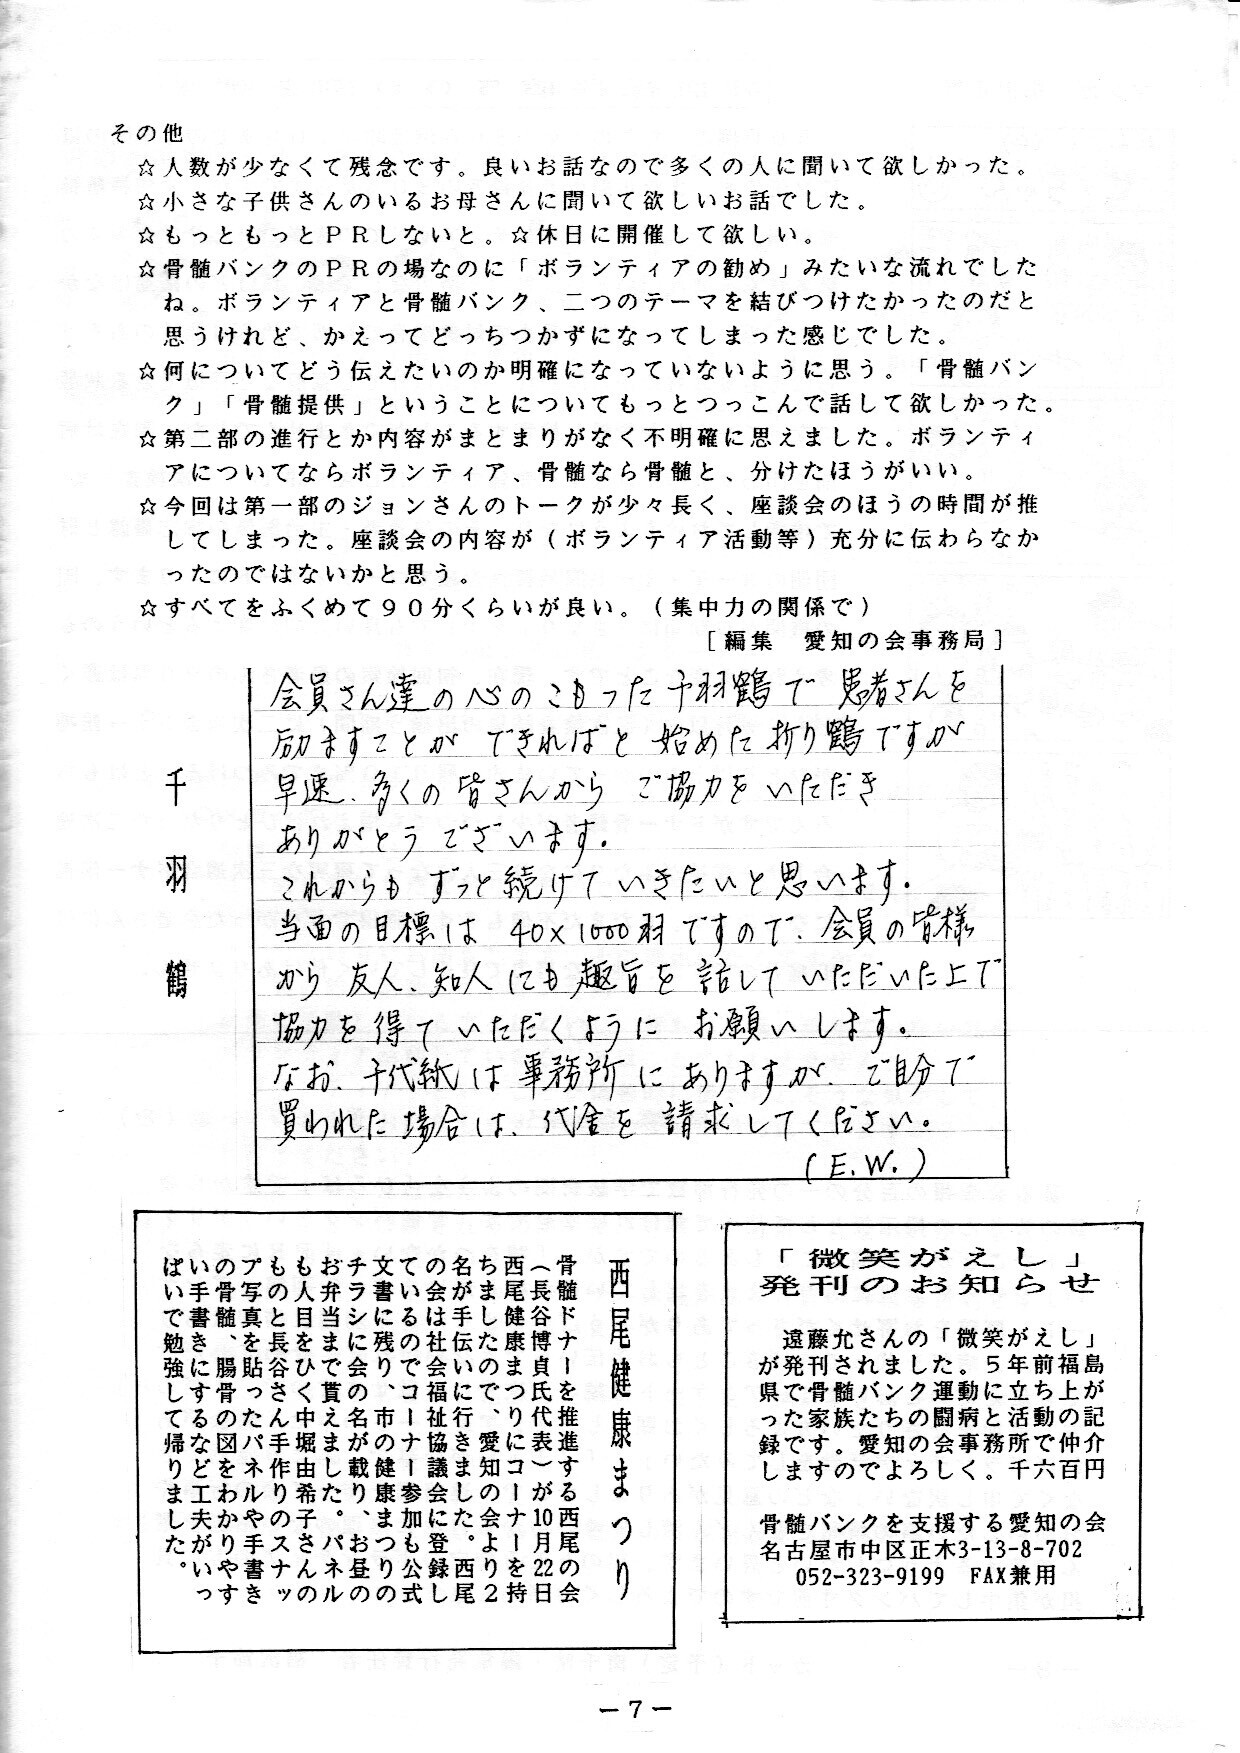 その他
☆人数が少なくて残念です。良いお話なので多くの人に聞いて欲しかった。
☆小さな子供さんのいるお母さんに聞いて欲しいお話でした。
☆もっともっとＰＲしないと。☆休日に開催して欲しい。
☆骨髄バンクのＰＲの場なのに「ボランティアの勧め」みたいな流れでした
ね。ボランティアと骨髄バンク、二つのテーマを結びつけたかったのだと
思うけれど、かえってどっちつかずになってしまった感じでした。
☆何についてどう伝えたいのか明確になっていないように思う。「骨髄バン
ク」「骨髄提供」ということについてもっとつっこんで話して欲しかった。
☆第二部の進行とか内容がまとまりがなく不明確に思えました。ボランティ
アについてならボランティア、骨髄なら骨髄と、分けたほうがいい。
☆今回は第一部のジョンさんのトークが少々長く、座談会のほうの時間が推
してしまった。座談会の内容が（ボランティア活動等）充分に伝わらなか
ったのではないかと思う。
☆すべてをふくめて９０分くらいが良い。（集中力の関係で）
［編集　愛知の会事務局］
千羽鶴
会員さん達の心のこもった千羽鶴で患者さんを
励ますことが できればと 始めた折り鶴ですが
早速、多くの皆さんから ご協力をいただき
ありがとうございます。
これからも ずっと続けていきたいと思います。
当面の目標は 40×1000羽ですので、会員の皆様
から 友人、知人にも趣旨を話していただいた上で
協力を得ていただくように お願いします。
なお、千代紙は事務所にありますが、ご自分で
買われた場合は、代金を請求してください。
(E.W.)
西尾健康まつり
骨髄ドナーを推進する西尾の会
（長谷博貞氏代表）が10月22日
西尾健康まつりにコーナーを持
ちましたので、愛知の会より２
名が手伝いに行きました。西尾
の会は社会福祉協議会に登録し
ているのでコーナー参加も公式
文書に残り、市の健康まつりの
チラシに会の名が載り、お昼の
お弁当まで貰えました。パネル
も人目をひく中堀由希子さんの
ものと長谷さん手作りのスナッ
プ写真を貼ったパネルや手書き
の骨髄、腸骨の図をわかりやす
い手書きにするなど工夫がいっ
ぱいで勉強して帰りました。
「微笑がえし」
発刊のお知らせ
遠藤允さんの「微笑がえし」
が発刊されました。５年前福島
県で骨髄バンク運動に立ち上が
った家族たちの闘病と活動の記
録です。愛知の会事務所で仲介
しますのでよろしく。千六百円
骨髄バンクを支援する愛知の会
名古屋市中区正木3-13-8-702
052-323-9199　FAX兼用
－７－